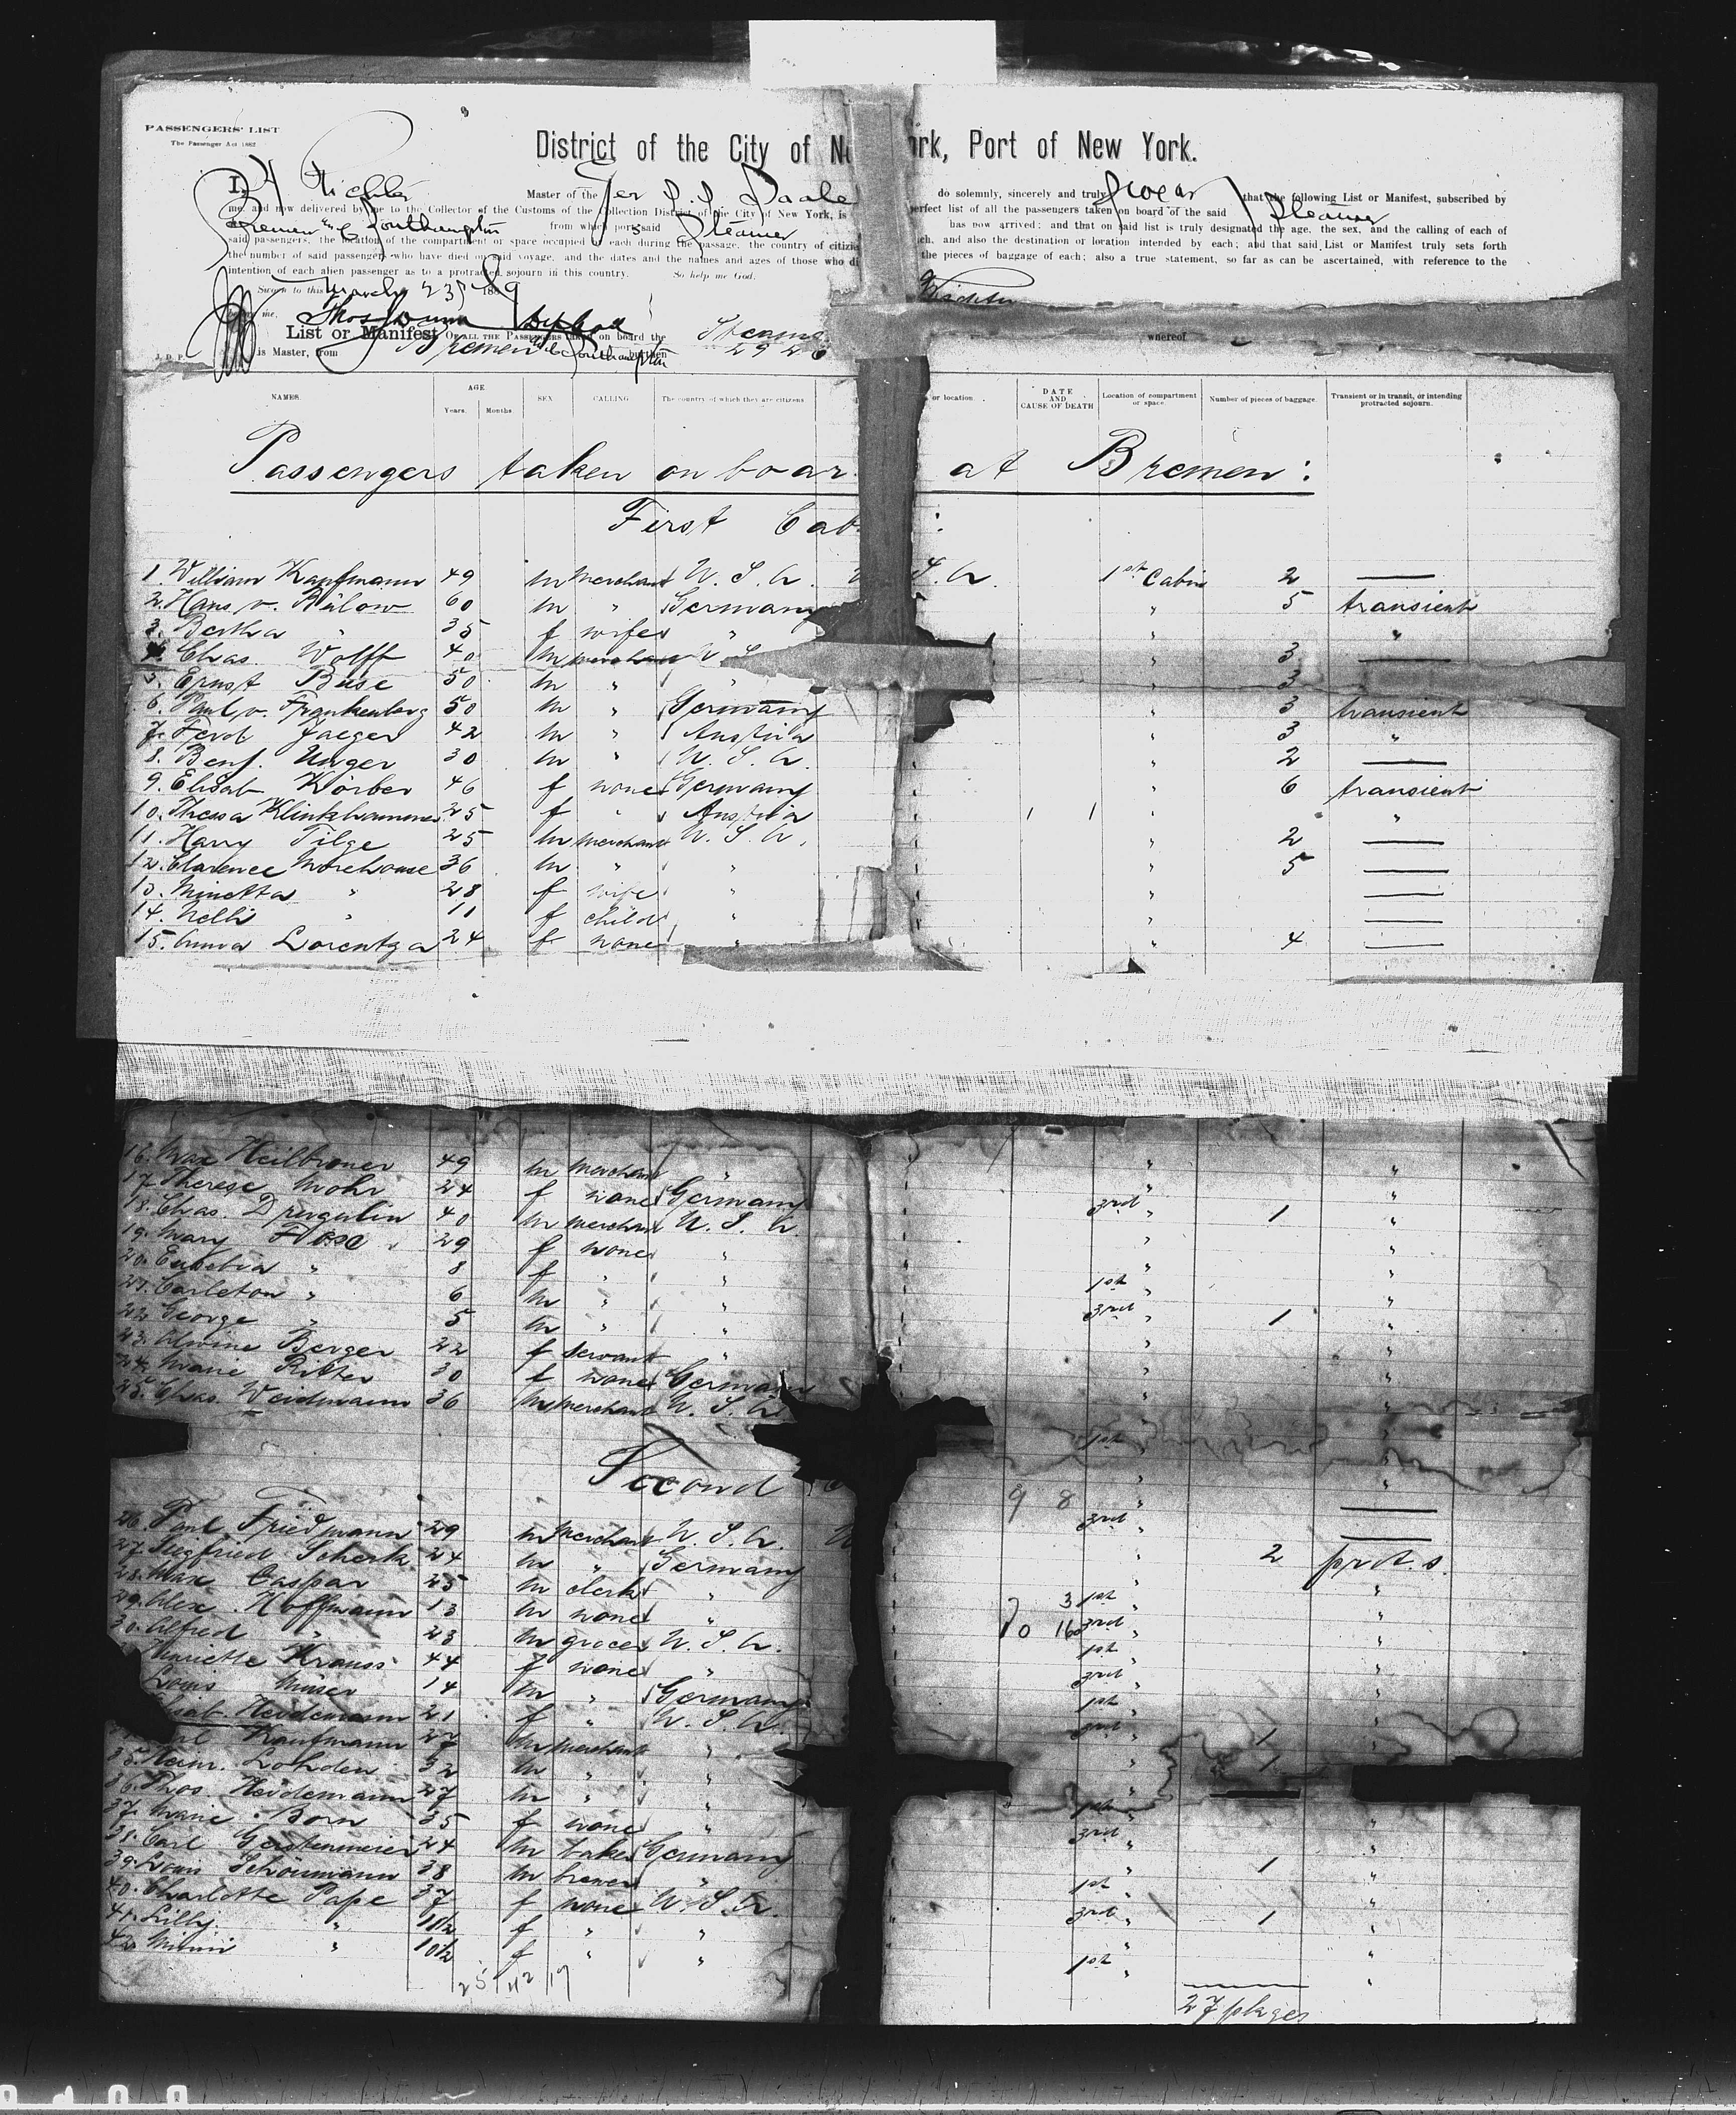 PASSENGERS' LIST
The Passenger Act 1882
District of the City of N ork, Port of New York.
I, Richter Master of the Ger S.S. Saale do solemnly, sincerely and truly swear that the following List or Manifest, subscribed by
me, and now delivered by me to the Collector of the Customs of the Collection District of the City of New York, is perfect list of all the passengers taken on board of the said Steamer
Bremen & Southampton from which port said Steamer has now arrived; and that on said list is truly designated the age, the sex, and the calling of each of
said passengers, the location of the compartment or space occupied each during the passage, the country of citize ch, and also the destination or location intended by each; and that said List or Manifest truly sets forth
the number of said passengers who have died on said voyage, and the dates and the names and ages of those who di the pieces of baggage of each; also a true statement, so far as can be ascertained, with reference to the
intention of each alien passenger as to a protracted sojourn in this country. So help me God.
Sworn to this March 23 1889 Richter
me,
List or Manifest OF ALL THE PASSENGERS taken on board the Steam whereof
is Master, from Bremen & Southampton burthen
NAMES. AGE Years. Months. SEX CALLING The country of which they are citizens or location. DATE AND CAUSE OF DEATH Location of compartment or space. Number of pieces of baggage. Transient or in transit, or intending protracted sojourn.
Passengers taken on boar at Bremen:
First Cab :
1. William Kaufmann 49 m merchant U.S.A. U S.A. 1st Cabin 2 —
2. Hans v. Bülow 60 m " Germany " 5 transient
3. Bertha " 35 f wife " " "
4. Chas. Wolff 40 m merchant U S " 3 —
5. Ernst Buse 50 m " " " 3 —
6. Paul v. Frankenberg 50 m " Germany " 3 transient
7. Ferd Jaeger 42 m " Austria " 3 "
8. Benj. Unger 30 m " U.S.A. " 2 —
9. Elisab Körber 46 f none Germany " 6 transient
10. Theresa Klinkhammer 25 f " Austria " "
11. Harry Tilge 25 m merchant U.S.A. " 2 —
12. Clarence Morehouse 36 m " " " 5 —
13. Minetta " 28 f wife " " —
14. Nelli " 11 f child " " —
15. Anna Lorentza 24 f none " " 4 —
16. Max Heilbroner 49 m merchant " " "
17. Therese Mohr 24 f none Germany " "
18. Chas. Drugulin 40 m merchant U.S.A. 3rd " 1 "
19. Mary 29 f none " " "
20. Eusebia " 8 f " " " "
21. Carleton " 6 m " " 1st " "
22. George " 5 m " " 3rd " 1 "
23. Alwine Berger 22 f servant " " "
24. Marie Ritter 30 f none Germany " "
25. Chas. Weidmann 36 m merchant U.S.A. " "
1st "
Second
9 8
26. Paul Friedmann 29 m merchant U.S.A. U 3rd " —
27. Siegfried Scherk 24 m " Germany " 2 prot. s.
28. Max Caspar 25 m clerk " 3 1st " "
29. Alex. Hoffmann 13 m none " 3rd " "
30. Alfred " 23 m grocer U.S.A. 1st " "
Henriette Krauss 44 f none " 3rd " "
Louis 14 m " Germany 1st " "
Heidemann 21 f " U.S.A. 3rd " 1 "
Kaufmann 27 m merchant " " 1 "
35. Heinr. Lohden 32 m " " "
36. Thos. Heidemann 27 m " " 1st " "
37. Marie Born 35 f none " 3rd " "
38. Carl Gerstenmeier 24 m baker Germany " 1 "
39. Louis Schönmann 38 m brewer " 1st " "
40. Charlotte Pape 37 f none U.S.A. 3rd " 1 "
41. Lilly " f " " " "
42. Mimi " 10½ f " " 1st " "
25 42 17
27 pkges